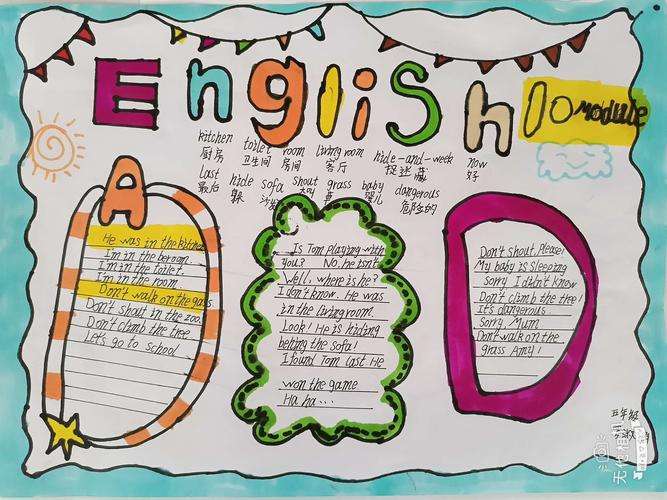 English 10 module
kitchen toilet room living room hide-and-week now
厨房 卫生间 房间 客厅 捉迷藏 好
last hide sofa shout grass baby dangerous
最后 躲 沙发 大叫 草 婴儿 危险的
A
He was in the kitchen
I'm in the beroon.
I'm in the toilet.
I'm in the room
Don't walk on the gass.
Don't shout in the zoo.
Don't climb the tree
Let's go to school
Is Tom playing with
you? No. he isn't
Well, where is he?
I don't know. He was
in the living room.
Look! He is hiding
behing the sofa!
I found Tom last He
won the game
Ha ha...
Don't shout, Please!
My baby is sleeping
Sorry I didn't know
Don't climb the tree!
It's dangerous
Sorry, Mum
Don't walk on the
grass Amy!
五年级